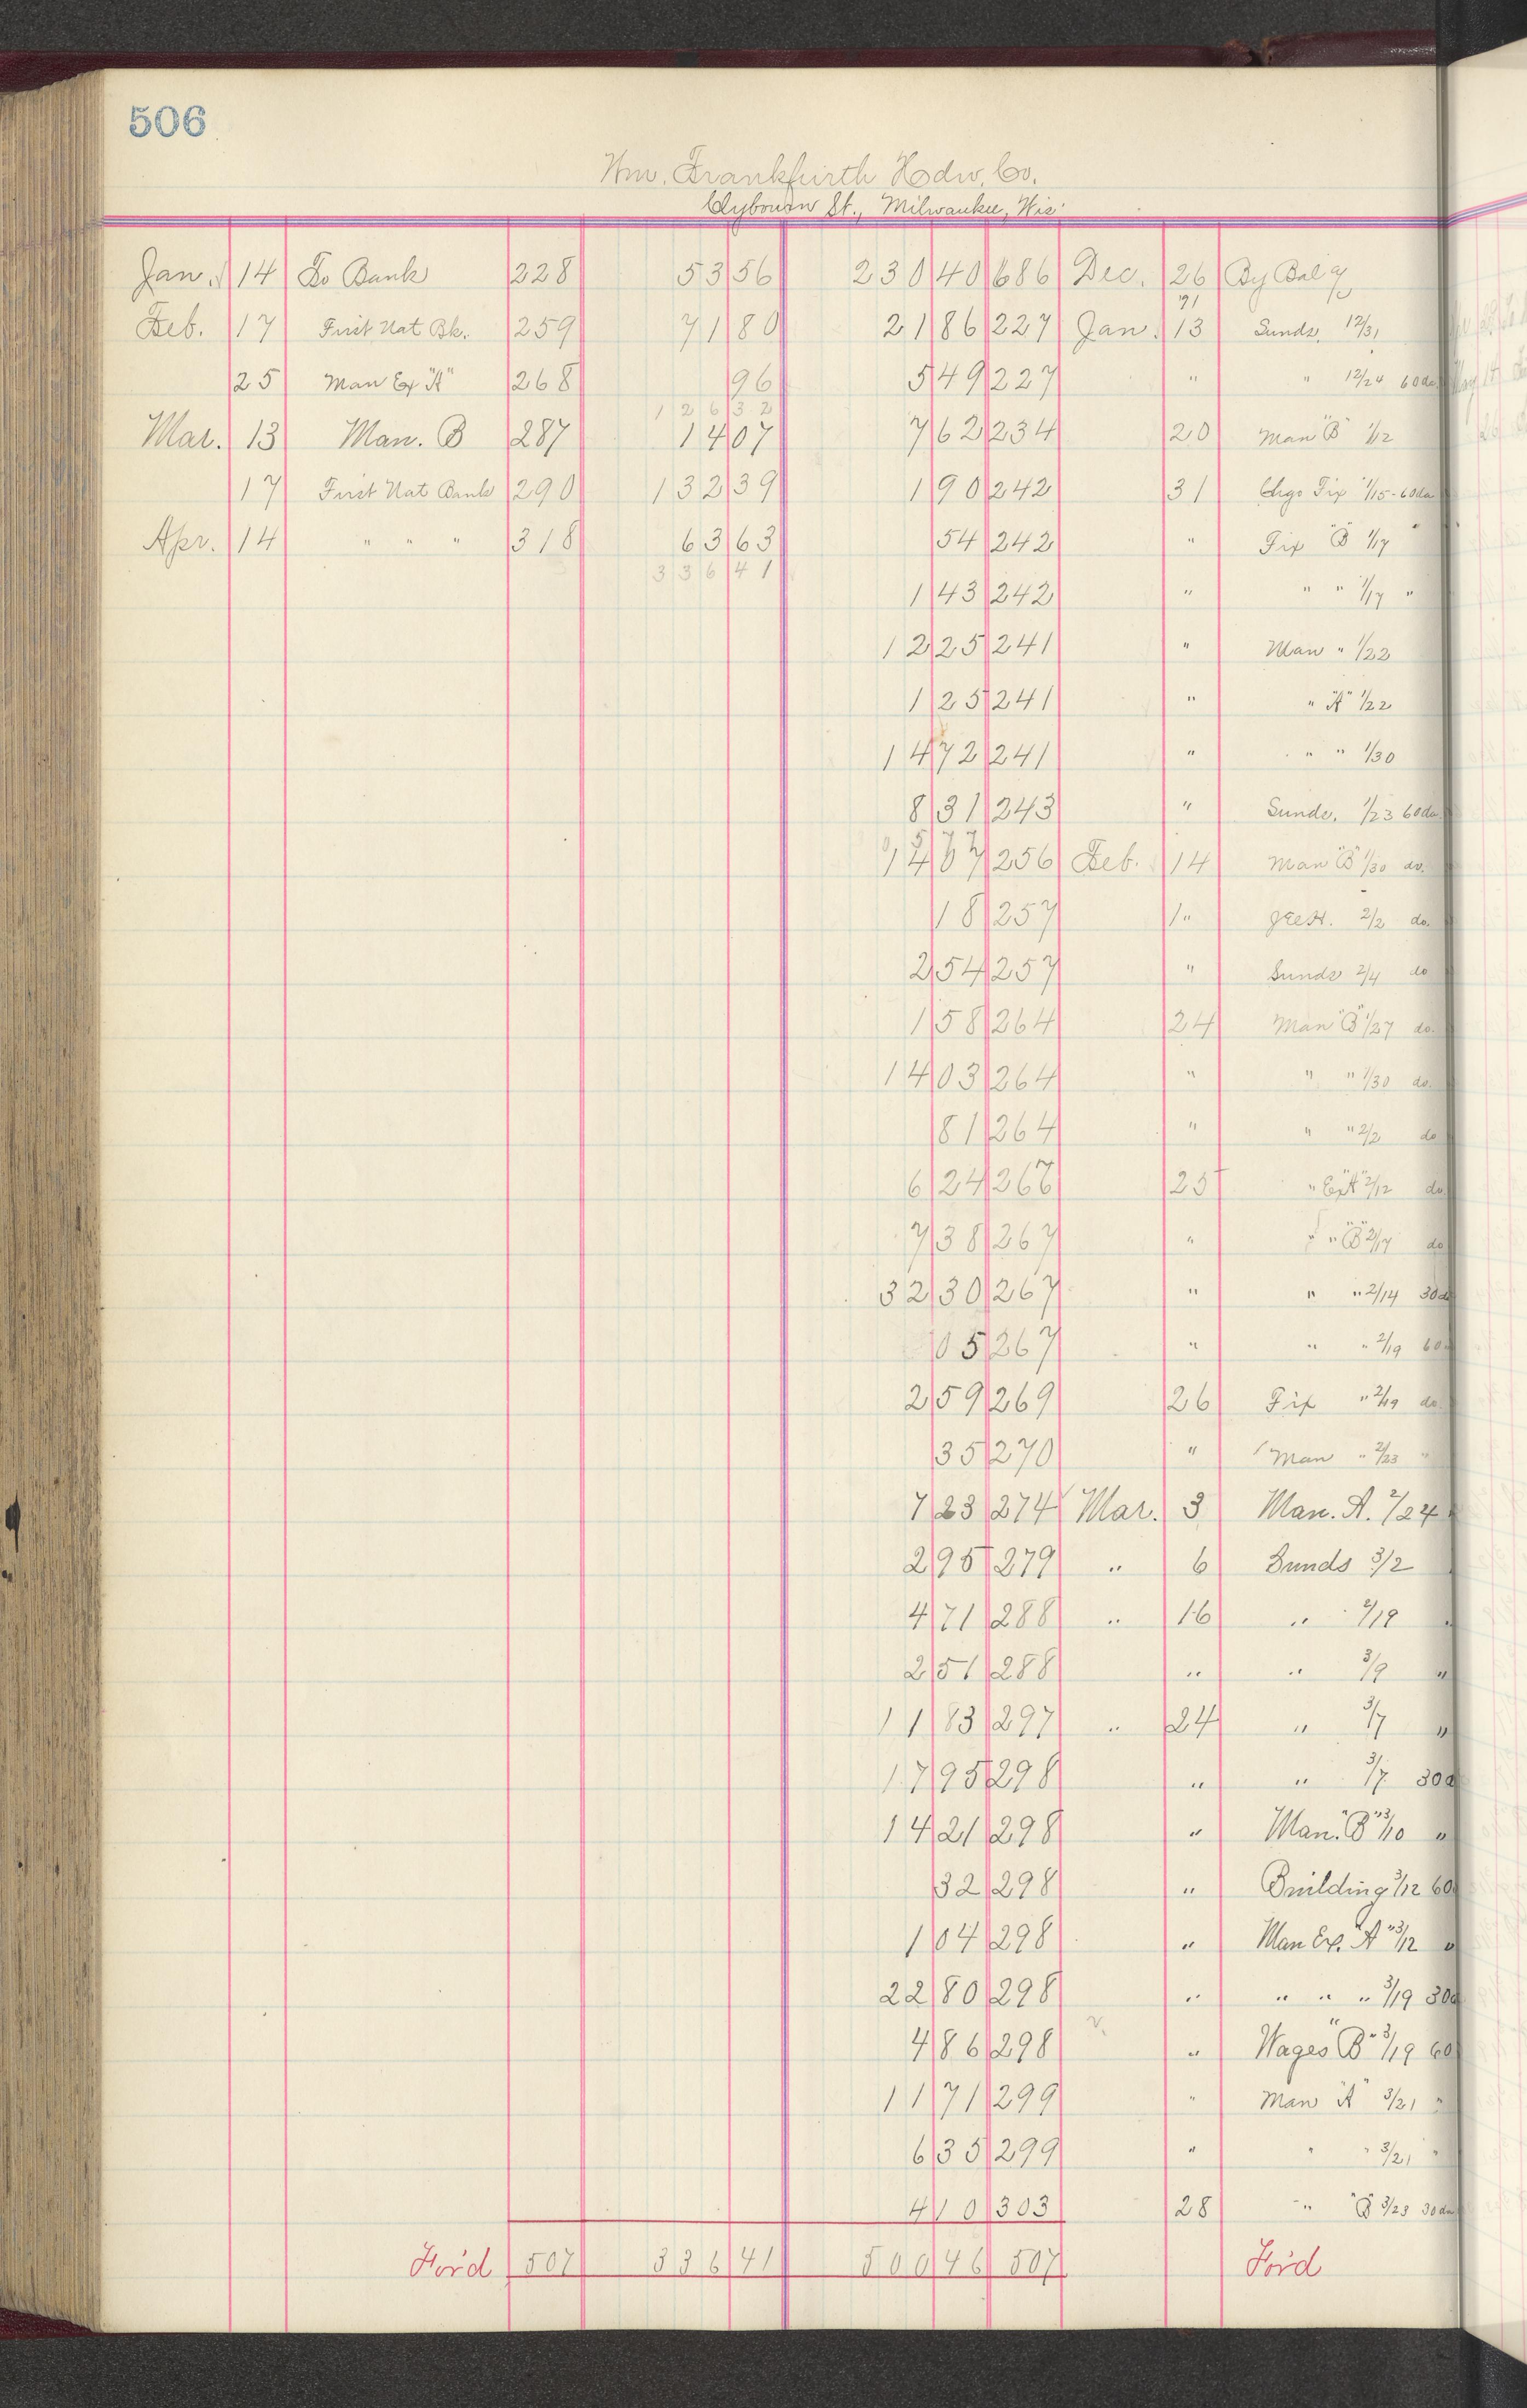 506
Wm. Frankfurth Hdw. Co.
Clybourn St., Milwaukee, Wis
Jan. 14 To Bank 228 53 56 230 40 686 Dec. 26 By Bal
'91
Feb. 17 First Nat Bk. 259 71 80 21 86 227 Jan. 13 Sunds. 12/31
25 Man Ex "A" 268 96 5 49 227 " " 12/24 60da
126 32
Mar. 13 Man. B 287 14 07 7 62 234 20 Man "B" 1/12
17 First Nat Bank 290 132 39 1 90 242 31 Chgo Fix 1/15-60da
Apr. 14 " " " 318 63 63 54 242 " Fix "B" 1/17 "
336 41
1 43 242 " " " 1/17 "
12 25 241 " Man " 1/22
1 25 241 " " "A" 1/22
14 72 241 " " " 1/30
8 31 243 " Sunds. 1/23 60da
256 Feb. 14 Man "B" 1/30 do.
18 257 " 2/2 do.
2 54 257 " Sunds 2/4 do
1 58 264 24 Man "B" 1/27 do.
14 03 264 " " " 1/30 do.
81 264 " " " 2/2 do
6 24 267 25 " Ex "A" 2/12 do
7 38 267 " " " "B" 2/17 do
32 30 267 " " " 2/14 30d
05 267 " " " 2/19 60
2 59 269 26 Fix " 2/19 do.
35 270 " Man " 2/23 "
7 23 274 Mar. 3 Man. A. 2/24
2 95 279 " 6 Sunds 3/2
4 71 288 " 16 " 2/19 "
2 51 288 " " 3/9 "
11 83 297 " 24 " 3/7 "
17 95 298 " " 3/7 30d
14 21 298 " Man. "B" 3/10 "
32 298 " Building 3/12 60
1 04 298 " Man Ex. "A" 3/12 "
22 80 298 " " " " 3/19 30d
4 86 298 " Wages "B" 3/19 60
11 71 299 " Man "A" 3/21 "
6 35 299 " " " 3/21 "
4 10 303 28 " "B" 3/23 30da
For'd 507 336 41 500 46 507 For'd